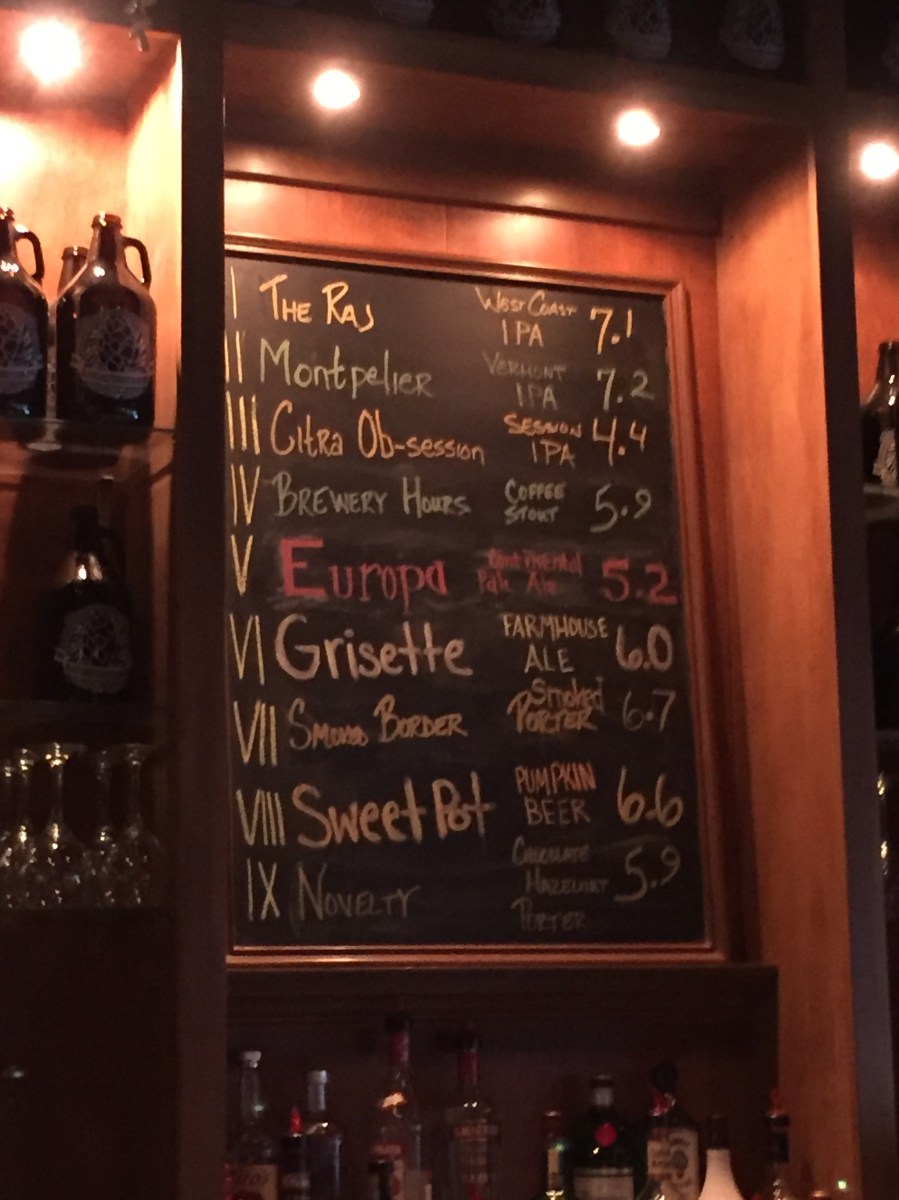 I THE RAJ WEST COAST IPA 7.1
II Montpelier VERMONT IPA 7.2
III CITRA Ob-session SESSION IPA 4.4
IV BREWERY HOURS COFFEE STOUT 5.9
V Europa Continental Pale Ale 5.2
VI Grisette FARMHOUSE ALE 6.0
VII BORDER Smoked PORTER 6.7
VIII Sweet Pot PUMPKIN BEER 6.6
IX NOVELTY CHOCOLATE HAZELNUT PORTER 5.9